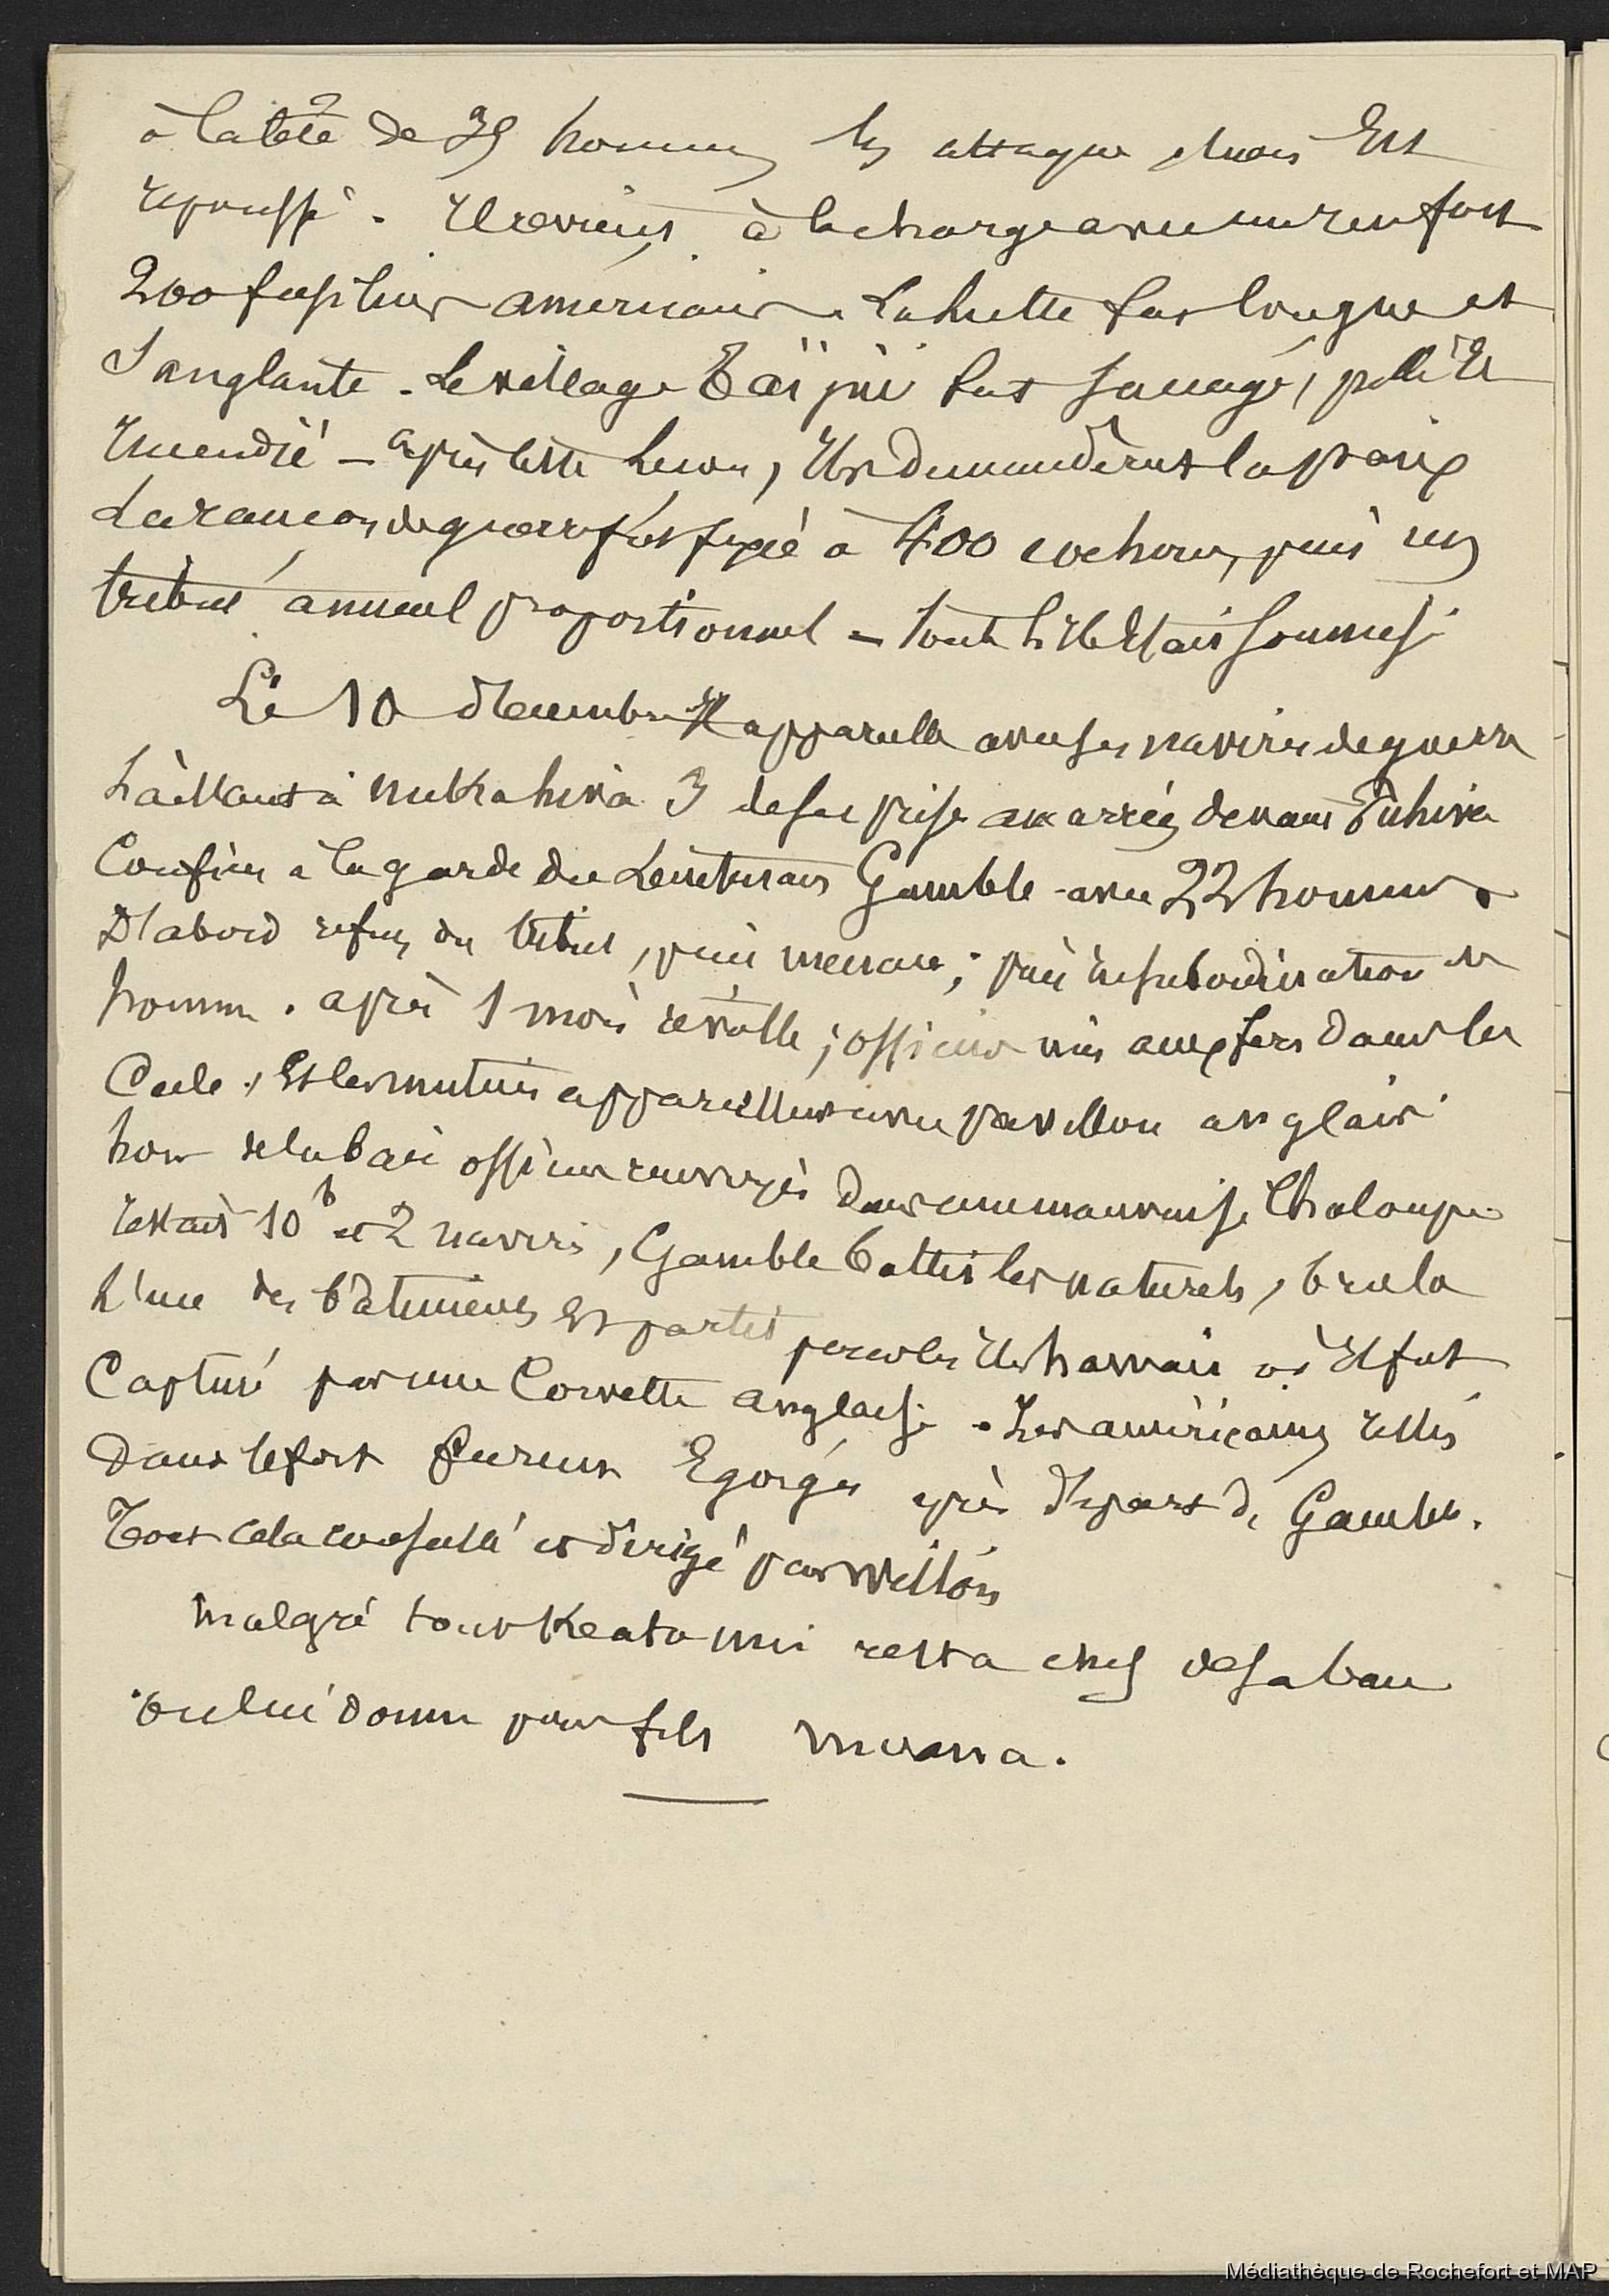 à la tête de 35 hommes les attaque mais Est
repoussé. Il revient à la charge avec un renfort
200 fusiliers américains. La lutte fut longue et
Sanglante. Le village Taïpii fut saccagé, pillé Et
Incendié — après cette Leçon, Ils demandèrent la paix
La rançon de guerre fut fixée à 400 cochons, puis un
tribut annuel proportionnel — toute l'île était soumise
Le 10 décembre Il appareille avec ses navires de guerre
laissant à Nukahiva 3 de ses prises amarrées devant Tuhiva
Confiées à la garde du Lieutenant Gamble - avec 22 hommes.
D'abord refus du tribut, puis menace; puis insubordination des
hommes. après 1 mois révolte; officiers mis aux fers dans la
Cale, Et les mutins appareillent avec pavillon anglais
hors de la baie officiers renvoyés dans une mauvaise Chaloupe
restait 10 h et 2 navires, Gamble battit les naturels, brula
L'une des bâtiments Et partit pour les Iles hawaii où Il fut
Capturé par une Corvette anglaise. Les américains restés
Dans le fort furent Egorgés après départ de Gamble.
Tout cela conseillé et dirigé par Willson
Malgré tout Keatonui resta chef de sa baie
on lui donne pour fils Moana.
Médiathèque de Rochefort et MAP